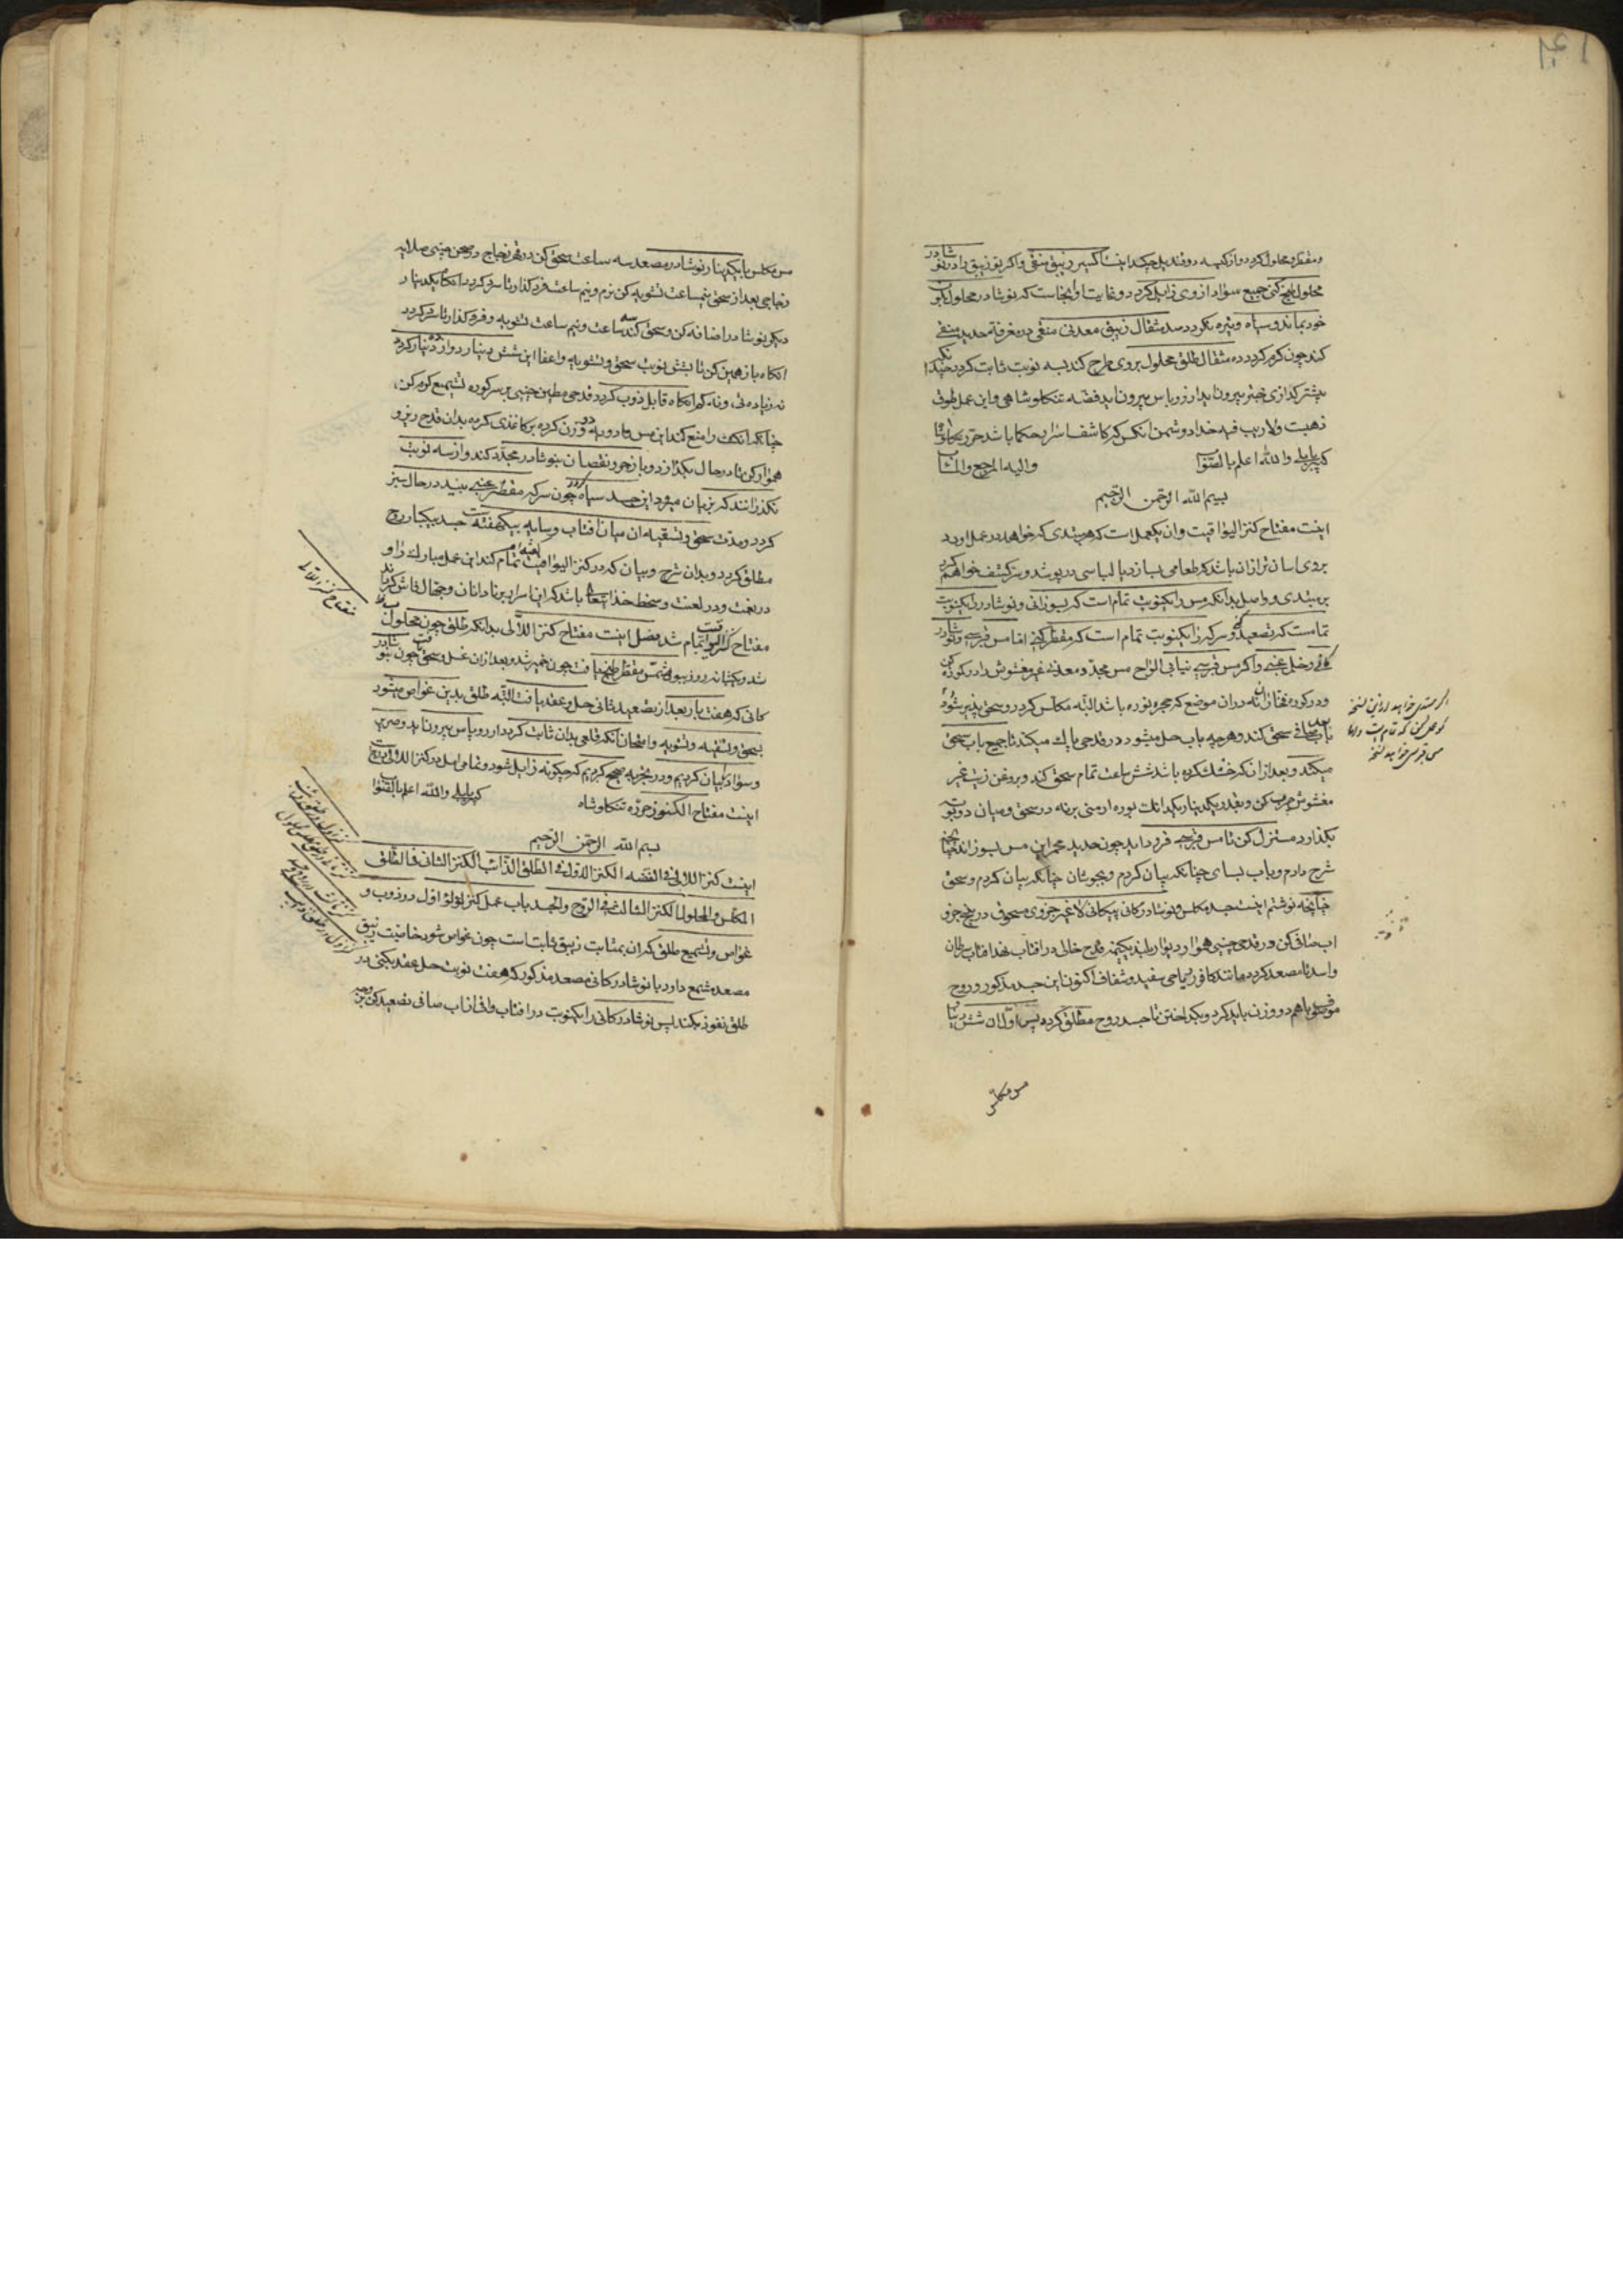 و مقطر و محلول کردد و از کیسه دو قند بل چکد اینست اکسیر زیبق منقی و اکر تو زیبق را در نوشادر
محلول طبخ کنی جمیع سواد از وی زایل کردد و غایت آنجاست که نوشادر محلول بلون
خود بماند و سیاه و تیره نکردد سه مثقال زیبق معدنی منقی در مغرفه حدید منقی
کند چون کرم کردد ده مثقال طلق محلول بروی طرح کند بسه نوبت ثابت کردد چندانکه
بیشتر کدازی خیر بیرون اید از روباس بیرون اید فضه تنکلوشاهی و این عمل طوفی
ذهبت ولاریب فیه خدا دوشمن انکس که کاشف اسرار حکما باشد حرره تنکلوشا
که بابلی والله اعلم بالصواب والیه المرجع والمئاب
بسم الله الرحمن الرحیم
اینست مفتاح کنز الیواقیت وان یکعمل است که هر مبتدی که خواهد در عمل اورد
بروی اسان تر از ان باشد که طعامی بسازد یا لباسی درپوشد و سر کشف خواهم کرد
بر مبتدی و واصل بدانکه مس را یکنوبت تمام است که بسوزانی و نوشادر را یکنوبت
تمامست که تصعید کنی و سرکه را یکنوبت تمام است که مقطر کنی اما مس قبرسی و نوشادر
کانی و خل عنبی و اکر مس قبرسی نیابی الواح مس مجدد معدنی غیر مغشوش را در کوره کن
و در کوره فخاران نه دران موضع که حجره نوره باشد البته مکلس کردد و سحق پذیر شود
باب صافی سحق کند و هرچه باب حل میشود در قدحی پاک میکند تا جمیع باب سحق
میکند و بعد از ان که خشک کرده باشد شش ساعت تمام سحق کند و بروغن زیت غیر
مغشوش چرب کن و بقدر یکدینار یکدانک بوره ارمنی برنه در سحق و میان دو بوته
بکذار و مستنزل کن تا مس قبرسی فرود اید چون حدید محمر این مس بسوزاند چنانچه
شرح دادم و باب بسای چنانکه بیان کردم و بجوشان چنانکه بیان کردم و سحق
چنانچه نوشتم اینست جسد مکلس و نوشادر کانی پیکانی لاغیر جزوی مسحوق در پنج جزو
اب صافی کن و در قدحی چینی هموار دیوار بلند بیکنیمه قدح خالی در افتاب نهد افتاب سرطان
و اسد تا مصعد کردد مانند کافور ریاحی سفید و شفاف اکنون این جسد مذکور و روح
موصوف باهم دو وزن باید کرد و بکداختن تا جسد روح مطلق کردد پس اول ان شش دینار
مس مکلس
مس مکلس با یکدینار نوشادر مصعد سه ساعت سحق کن در قدح زجاج و صحن چینی صلایه
زجاجی بعد از سحق نیمساعت تشویه کن نرم و نیم ساعت فرو کذار تا سرد کردد انکاه یکدینار
دیکر نوشادر اضافه کن و سحق کند سه ساعت و نیم ساعت تشویه و فرو کذار تا سرد کردد
انکاه باز همین کن تا بشش نوبت سحق و تشویه و اعفا این شش دینار دوازده دینار کردد
نه زیاده نی و نه کم انکاه قابل ذوب کردد قدحی مطین چینی بر سر کوره تشمیع کرم کن
چنانکه انکشت را منع کند این مس و ادویه دو وزن کرده بر کاغذی کرده بدان قدح ریز و
هموار کن تا در حال بکدازد و باز خورد نقصان بنوشادر مجدد کند و از سه نوبت
نکذرانند که بزیان میرود این جسد سیاه کردد چون سرکه مقطر عنبی بیند در حال سبز
کردد و مدت سحق و تسقیه ان میان افتاب و سایه بیکهفته است جسد بیکبار روح
مطلق کردد و بدان شرح و بیان که در کنز الیواقیت کفته ام تمام کند این عمل مبارک را و
در لعنت و در لعنت و سخط خدایتعالی باشد که این اسرار برنادانان و جهال فاش کرداند
مفتاح کنز الیواقیت تمام شد فصل اینست مفتاح کنز اللآلی بدانکه طلق چون محلول
شد و یکشبانه روز ببول شمس مقطر طبخ یافت چون خمیر شد و بعد از ان غسل و سحق چون بنوشادر
کانی که هفت بار بعد از تصعید ثانی حل و عقد یافت البته طلق بدین غواص میشود
بسحق و تسقیه و تشویه و امتحان انکه قلعی بدان ثابت کردد از روباس بیرون اید و صریر
و سواد بیان کردیم و در تجربه صحیح کردیم که چکونه زایل شود و تمامی اصل در کنز اللآلی درج است
اینست مفتاح الکنوز حرره تنکلوشاه که بابلی والله اعلم بالصواب
بسم الله الرحمن الرحیم
اینست کنز اللآلی فی الفضه الکنز الاول فی الطلق الذائب الکنز الثانی فی الطلق
المکلس والمحلول الکنز الثالث فی الروح والجسد باب عمل کنز لؤلؤ اول در ذوب و
غواص و تشمیع طلق که ان بمثابت زیبق ثابت است چون غواص شود خاصیت زیبق
مصعد مشمع دارد با نوشادر کانی مصعد مذکور که هفت نوبت حل عقد بکنی در
طلق نفوذ بکند پس نوشادر کانی را یکنوبت در افتاب وافی از اب صافی تصعید کن
مفتاح کنز اللآلی